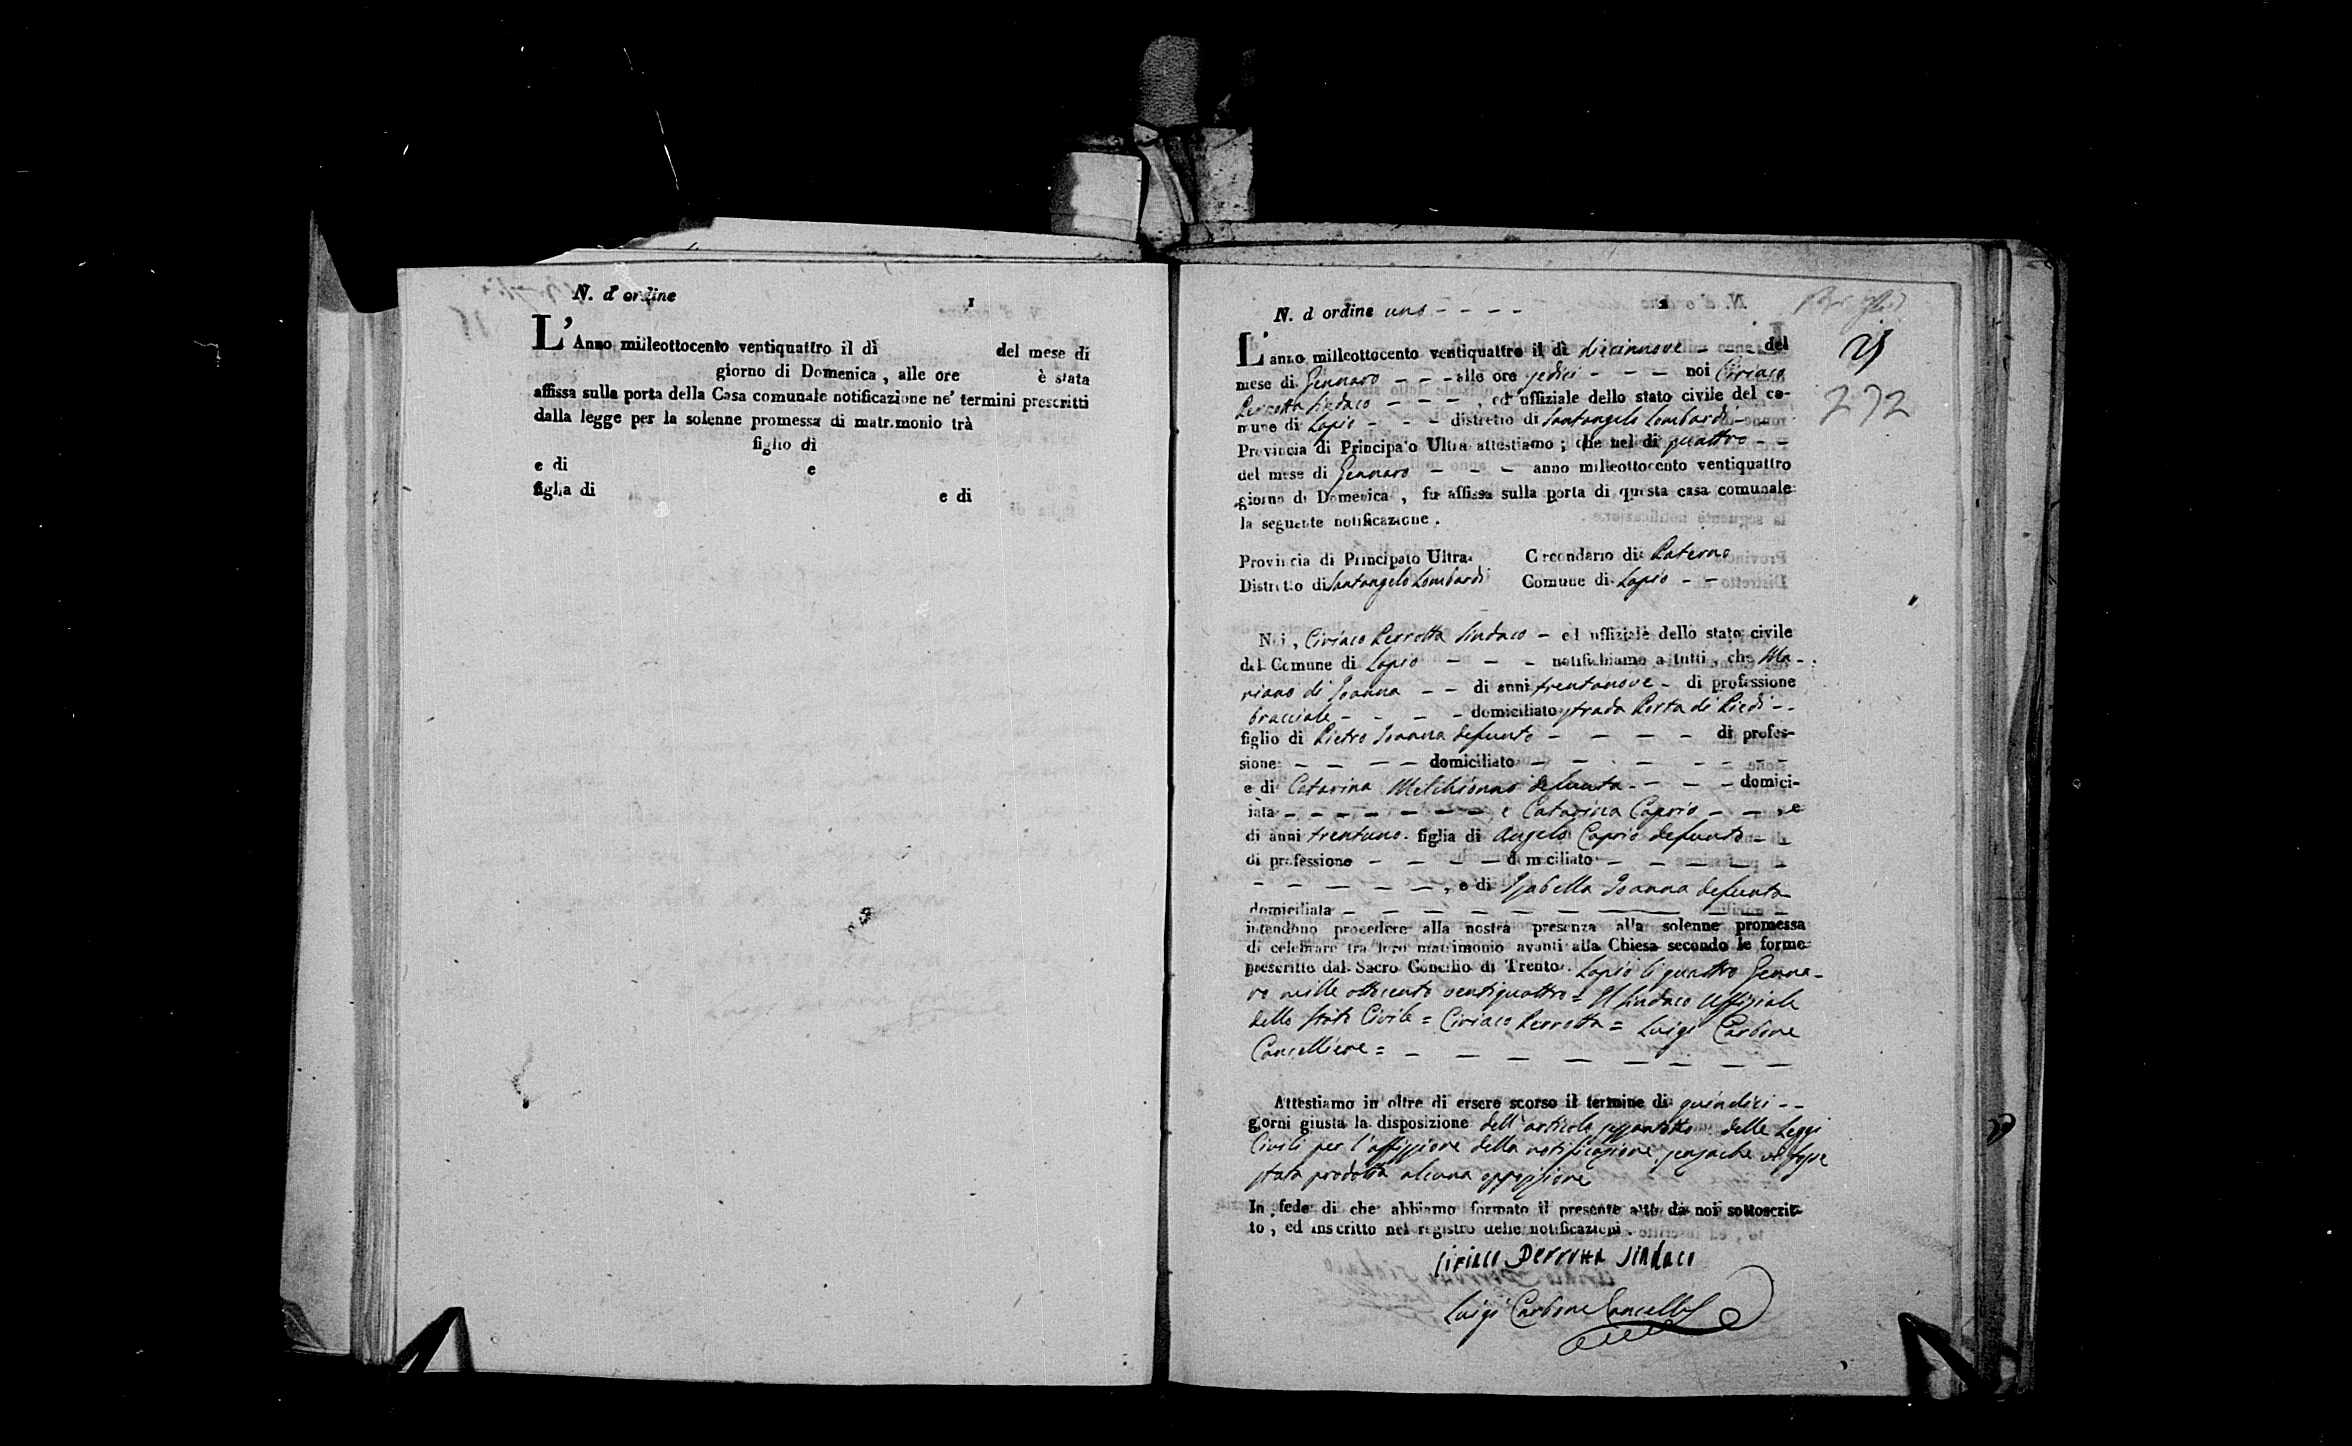 N. d'ordine 1
L'Anno milleottocento ventiquattro il dì del mese di
giorno di Domenica, alle ore è stata
affissa sulla porta della Casa comunale notificazione ne' termini prescritti
dalla legge per la solenne promessa di matrimonio trà
figlio di
e di e
figlia di e di
N. d ordine uno - - - -
L'anno milleottocento ventiquattro il dì diecinnove - - - del
mese di Gennaro - - - alle ore sedici - - - noi Ciriaco
Perrotta Sindaco - - - , ed uffiziale dello stato civile del co-
mune di Lapio - - - distretto di Santangelo Lombardi -
Provincia di Principato Ultra attestiamo ; che nel dì quattro - -
del mese di Gennaro - - - anno milleottocento ventiquattro
giorno di Domenica , fu affissa sulla porta di questa casa comunale
la seguente notificazione .
Provincia di Principato Ultra. Circondario di Paterno
Distretto di Santangelo Lombardi Comune di Lapio - -
Noi, Ciriaco Perrotta Sindaco - ed uffiziale dello stato civile
del Comune di Lapio - - - notifichiamo a tutti, che Ma-
riano di Joanna - - di anni trentanove - di professione
bracciale - - - - domiciliato strada Porta di Piedi - -
figlio di Pietro Joanna defunto - - - - di profes-
sione - - - - domiciliato - - - - - - -
e di Catarina Melchionno defunta - - - domici-
iata - - - - - - - - e Catarina Caprio - - , e
di anni trentuno figlia di Angelo Caprio defunto - -
di professione - - - - domiciliato - - - - -
- - - - - , e di Isabella Joanna defunta
domiciliata - - - - - - - - - -
intendono procedere alla nostra presenza alla solenne promessa
di celebrare tra loro matrimonio avanti alla Chiesa secondo le forme
prescritte dal Sacro Concilio di Trento. Lapio li quattro Genna-
ro mille ottocento ventiquattro = Il Sindaco Uffiziale
dello Stato Civile = Ciriaco Perrotta = Luigi Carbone
Cancelliere = - - - - - - - -
Attestiamo in oltre di essere scorso il termine di quindici - -
giorni giusta la disposizione dell'articolo settantotto delle Leggi
Civili per l'affissione della notificazione, senzache vi fosse
stata prodotta alcuna opposizione
In fede di che abbiamo formato il presente atto da noi sottoscrit-
to, ed inscritto nel registro delle notificazioni.
Ciriaco Perrotta Sindaco
Luigi Carbone
272